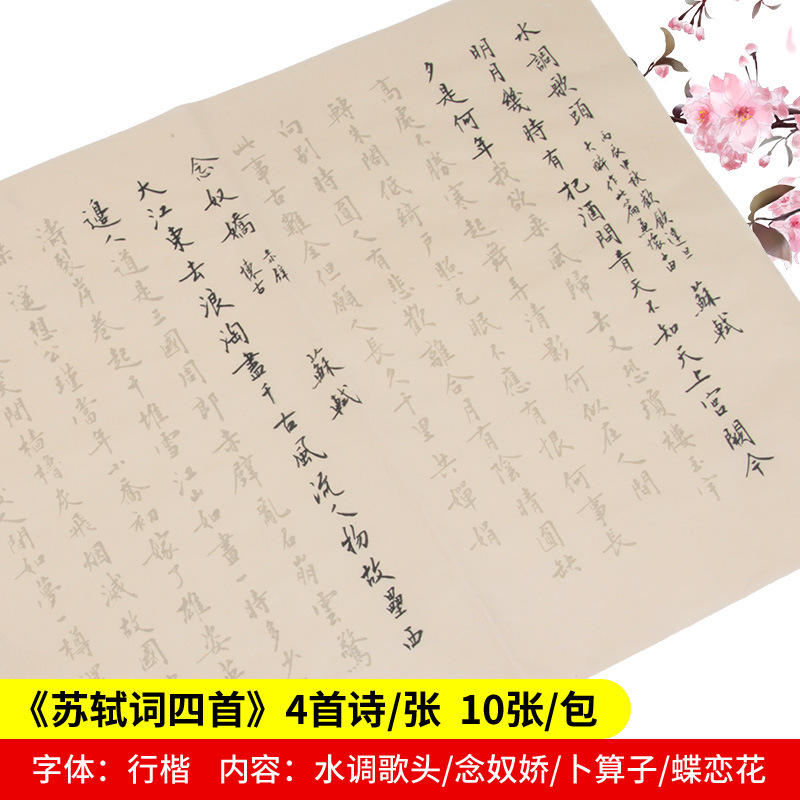 水調歌頭
丙辰中秋歡飲達旦
大醉作此篇兼懷子由
蘇軾
明月幾時有把酒問青天不知天上宮闕今
夕是何年我欲乘風歸去又恐瓊樓玉宇
高處不勝寒起舞弄清影何似在人間
轉朱閣低綺戶照无眠不應有恨何事長
向別時圓人有悲歡離合月有陰晴圓缺
此事古難全但願人長久千里共嬋娟
念奴嬌
赤壁
懷古
蘇軾
大江東去浪淘盡千古風流人物故壘西
邊人道是三國周郎赤壁亂石崩雲驚
濤裂岸卷起千堆雪江山如畫一時多少
遙想公瑾當年小喬初嫁了雄姿英
笑間檣櫓灰飛烟滅故國
人間如夢一樽還
《苏轼词四首》4首诗/张 10张/包
字体：行楷 内容：水调歌头/念奴娇/卜算子/蝶恋花